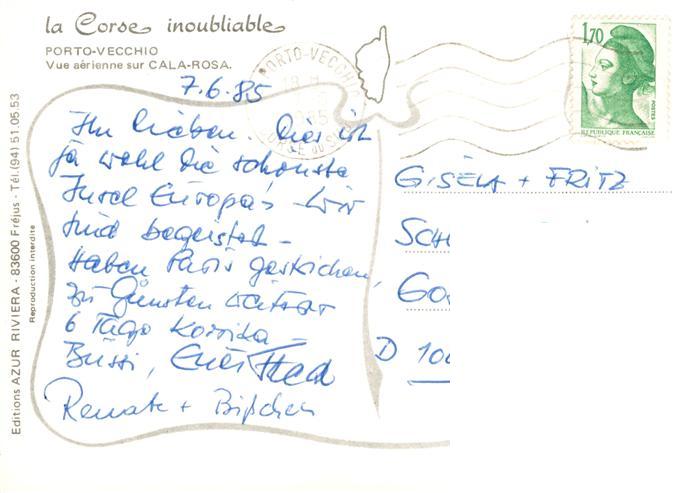 la Corse inoubliable
PORTO-VECCHIO
Vue aérienne sur CALA-ROSA.
7.6.85
Ihr lieben. Dies ist
ja wohl die schönste
Insel Europa's - Wir
sind begeistert -
Haben Paris gestrichen,
zu Gunsten weiterer
6 Tage Korsika -
Bussi, Euer
Renate +
GISELA + FRITZ
SCH
GO
D 100
1,70
POSTES
REPUBLIQUE FRANÇAISE
PORTO-VECCHIO
CORSE DU SUD
Editions AZUR RIVIERA - 83600 Fréjus - Tél. (94) 51.05.53
Reproduction interdite